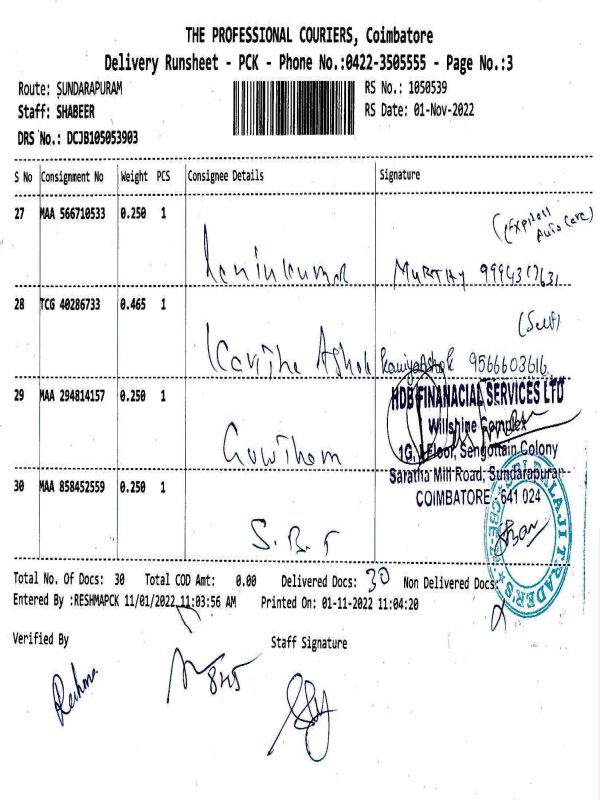 THE PROFESSIONAL COURIERS, Coimbatore
Delivery Runsheet - PCK - Phone No.:0422-3505555 - Page No.:3
Route: SUNDARAPURAM RS No.: 1050539
Staff: SHABEER RS Date: 01-Nov-2022
DRS No.: DCJB105053903
S No Consignment No Weight PCS Consignee Details Signature
27 MAA 566710533 0.250 1 (Express Auto Care)
MURTHY
28 TCG 40286733 0.465 1 (Self)
Kavitha Ashok 9566603616
29 MAA 294814157 0.250 1 HDB FINANACIAL SERVICES LTD
Willshine Complex
Gowtham 1G, I Floor, Sengottain Colony
30 MAA 858452559 0.250 1 Saratha Mill Road, Sundarapuram
COIMBATORE - 641 024
S.B.T
SRI BALAJI TRADER'S
CBE
Total No. Of Docs: 30 Total COD Amt: 0.00 Delivered Docs: 30 Non Delivered Docs:
Entered By :RESHMAPCK 11/01/2022 11:03:56 AM Printed On: 01-11-2022 11:04:20
Verified By Staff Signature
Reshma